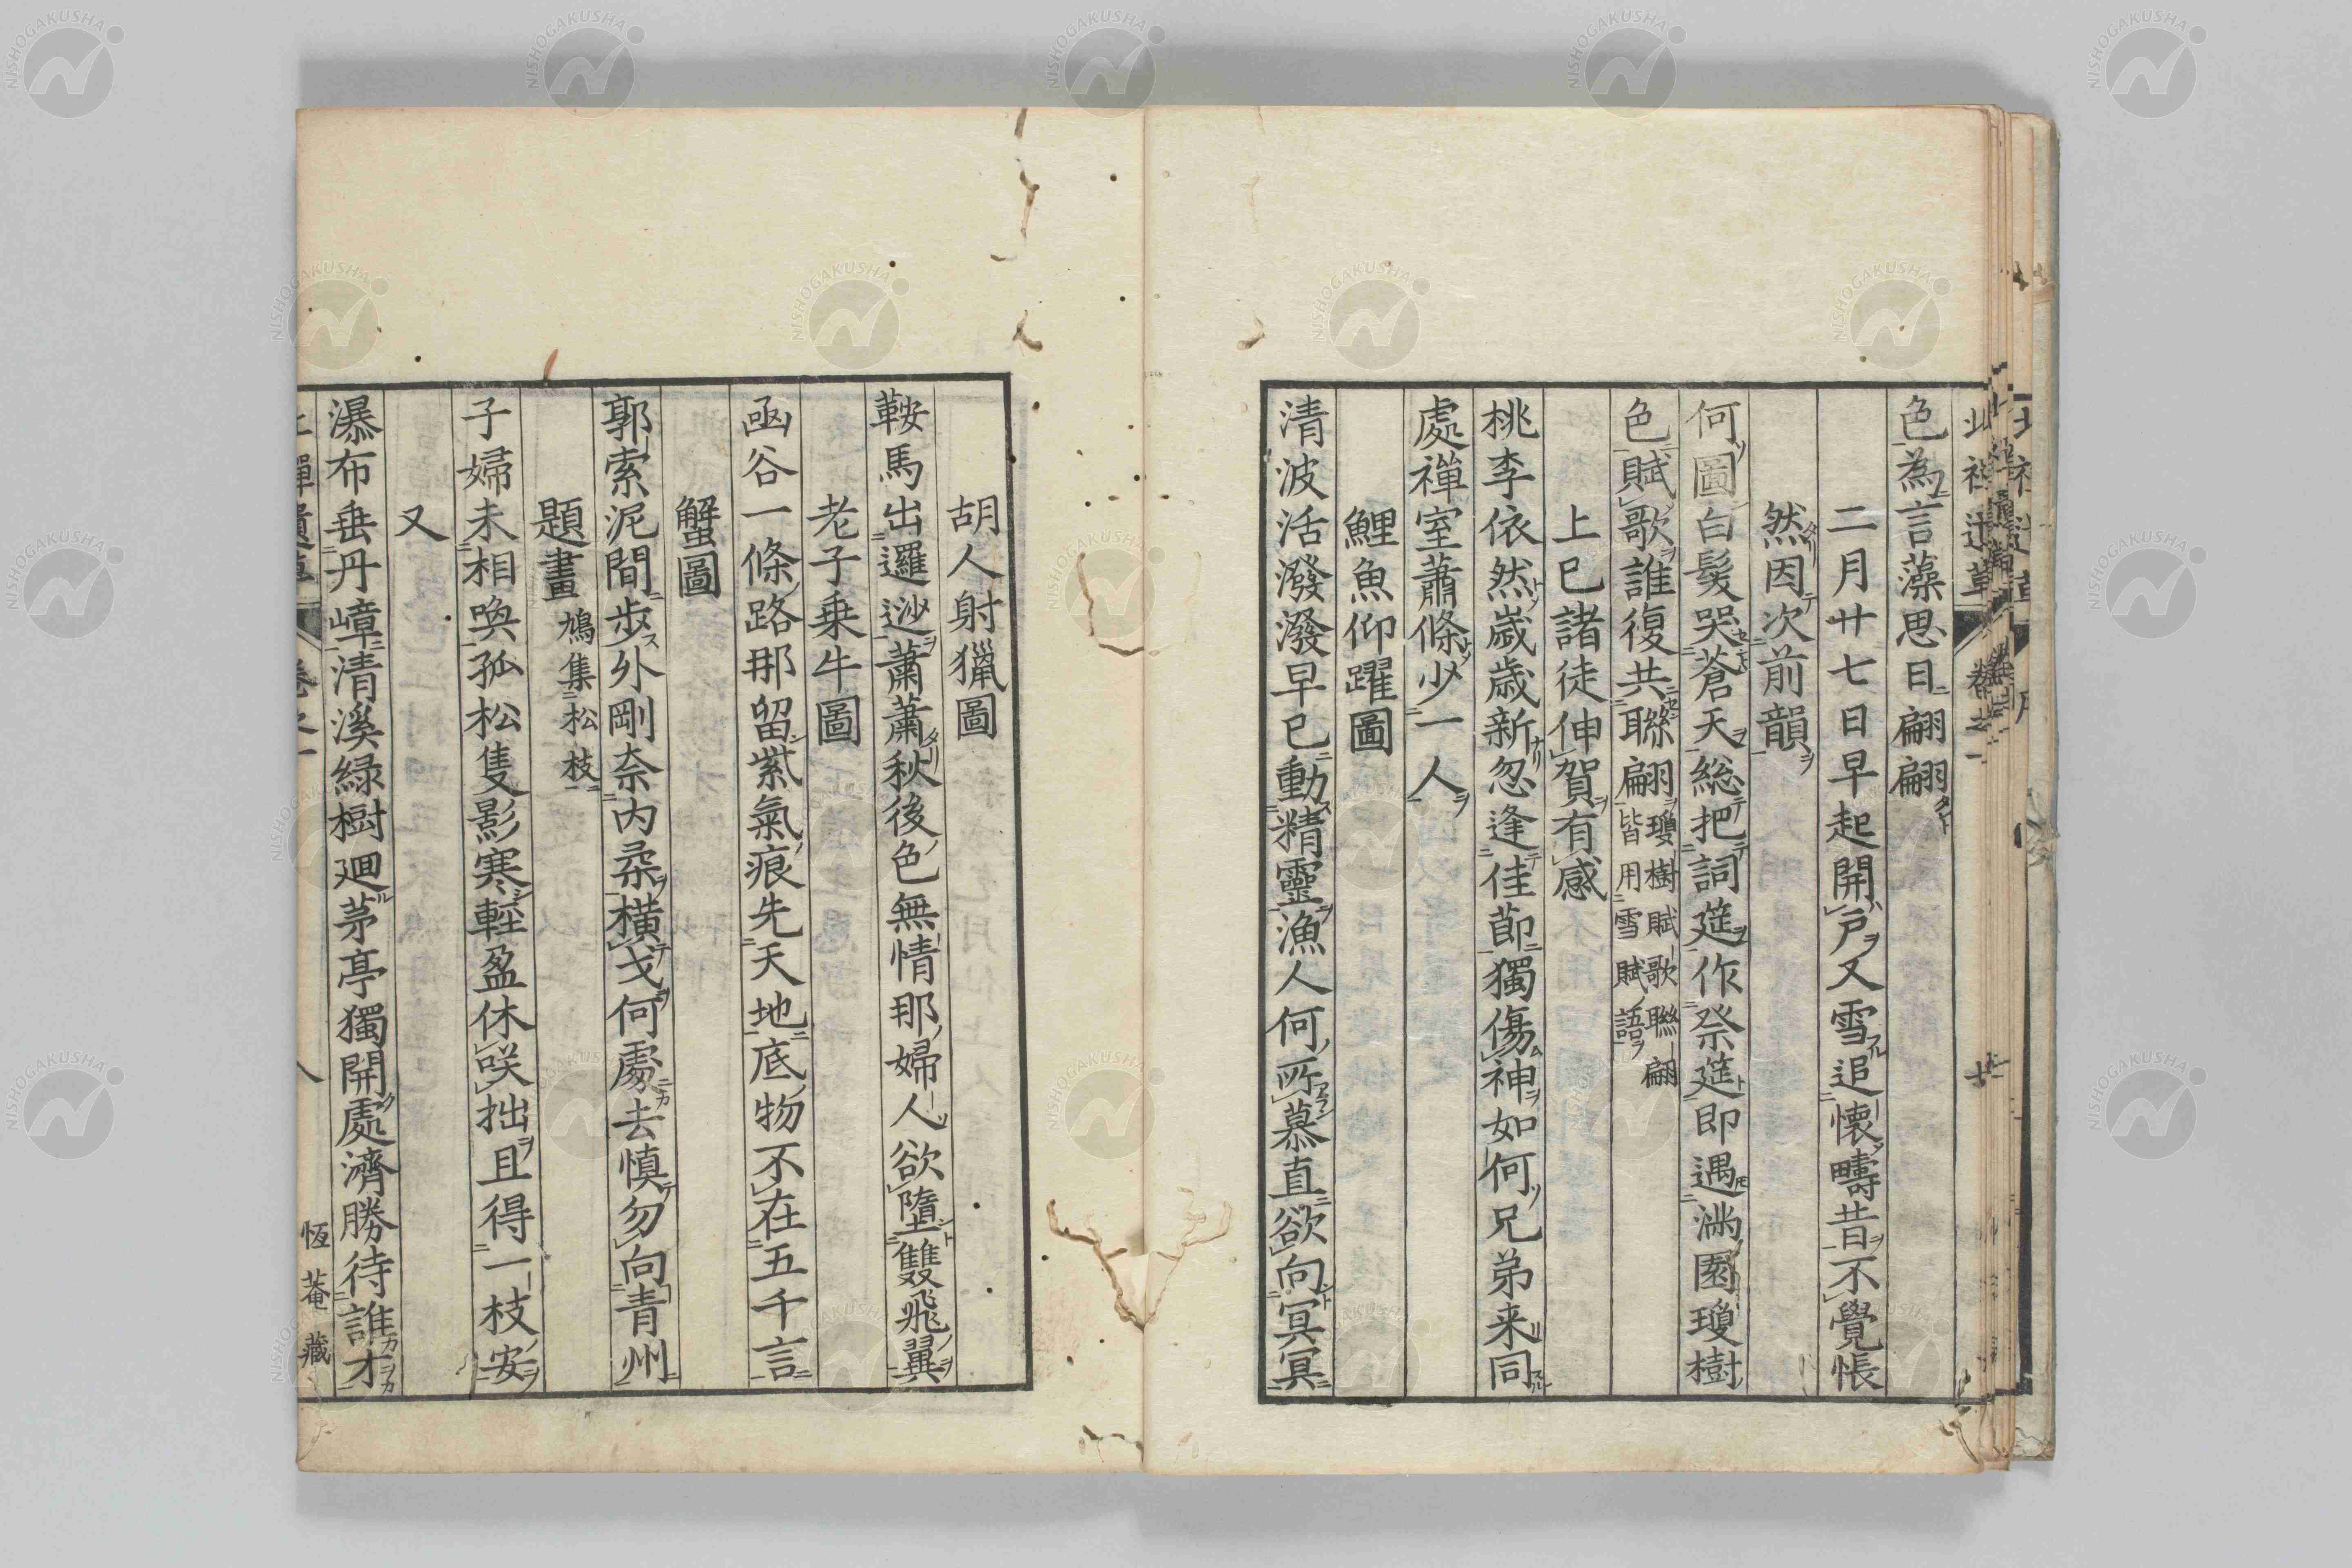 色為言藻思日翩翩
二月廿七日早起開戸又雪追懐疇昔不覺悵
然因次前韻
何圖白髮哭蒼天総把詞筵作祭筵即遇滿園瓊樹
色賦歌誰復共聯翩瓊樹賦歌聯翩
皆用雪賦語
上巳諸徒伸賀有感
桃李依然歳歳新忽逢佳節獨傷神如何兄弟来同
處禅室蕭條少一人
鯉魚仰躍圖
清波活潑潑早已動精靈漁人何所慕直欲向冥冥
胡人射獵圖
鞍馬出邏逤蕭蕭秋後色無情那婦人欲墮雙飛翼
老子乗牛圖
函谷一條路那留紫氣痕先天地底物不在五千言
蟹圖
郭索泥間歩外剛奈内柔横戈何處去慎勿向青州
題畫鳩集松枝
子婦未相喚孤松隻影寒輕盈休咲拙且得一枝安
又
瀑布垂丹嶂清溪緑樹廻茅亭獨開處濟勝待誰才
八
恆菴藏
NISHOGAKUSHA